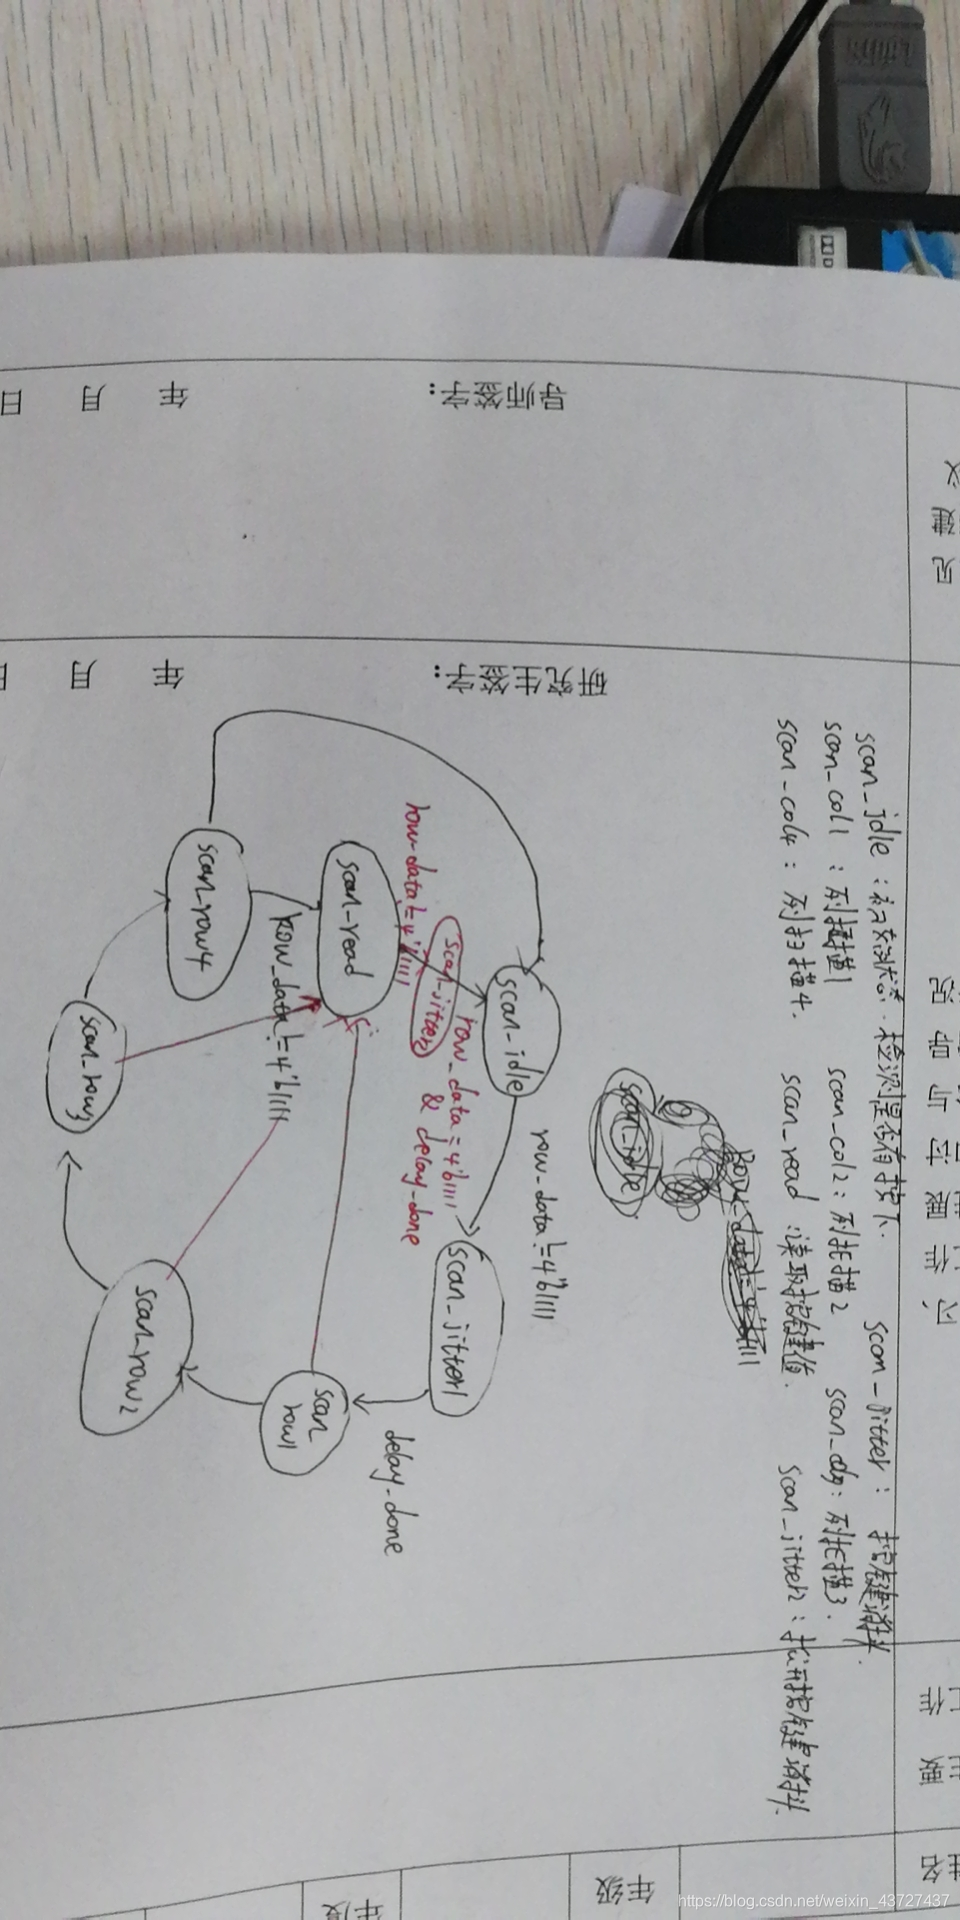 scan_idle : 初始状态. 检测是否有按下. scan_jitter : 按键消抖.
scan_col1 : 列扫描1 scan_col2 : 列扫描2 scan_col3 : 列扫描3.
scan_col4 : 列扫描4. scan_read : 读取按键值. scan_jitter2 : 松开按键消抖.
row_data!=4'b1111
scan_idle
row_data!=4'b1111
scan_idle
scan_jitter1
scan_jitter2
row_data=4'b1111
& delay_done
row_data!=4'b1111
delay_done
scan_read
scan
row1
row_data!=4'b1111
scan_row4
scan_row2
scan_row3
导师签字:
年 月 日
研究生签字:
年 月 日
年级
年度
姓名
https://blog.csdn.net/weixin_43727437